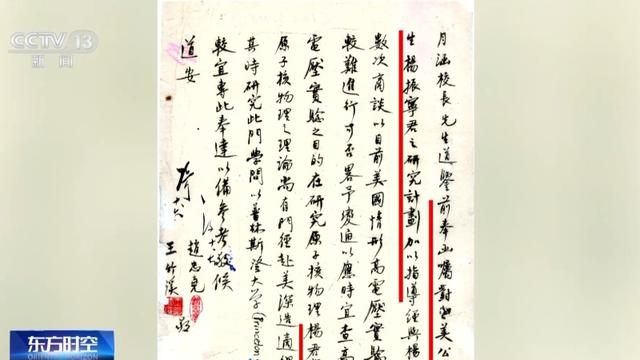 CCTV 13
新闻
月涵校長先生道鑒前奉函囑對留美公
生楊振寧君之研究計劃加以指導經與楊
數次商談以目前美國情形高電壓實
較難進行可否畧予變通以應時宜查高
電壓實驗之目的在研究原子核物理楊君
原子核物理之理論尚有門徑赴美深造適
其時研究此門學問以普林斯登大學(Princeton
較宜專此奉達以備參考敬候
道安
趙忠堯
王竹溪
东方时空